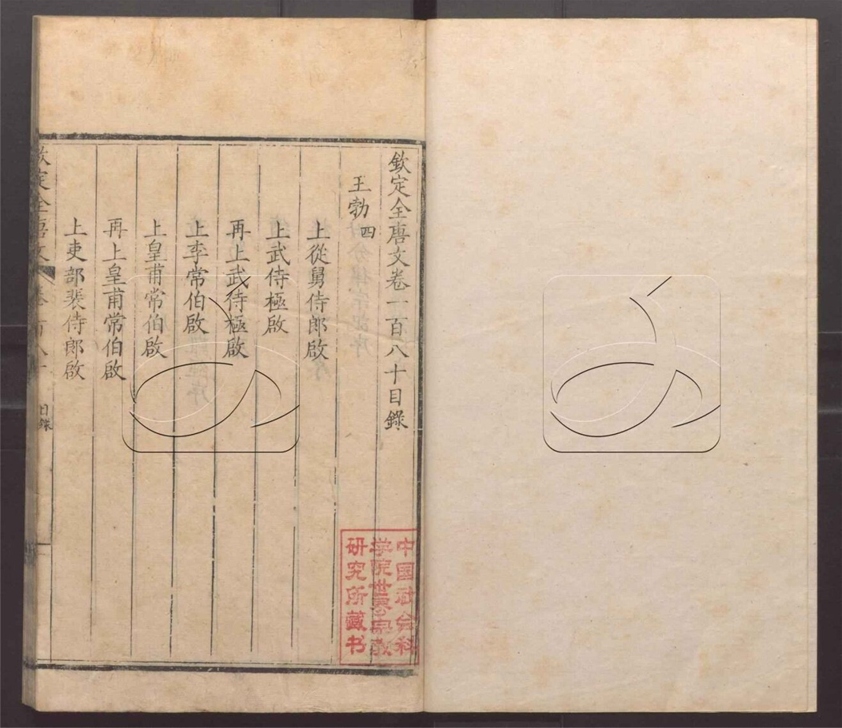 欽定全唐文卷一百八十目錄
王勃四
上從舅侍郎啟
上武侍極啟
再上武侍極啟
上李常伯啟
上皇甫常伯啟
再上皇甫常伯啟
上吏部裴侍郎啟
欽定全唐文 卷一百八十 目錄 一
中国社会科
学院世界宗教
研究所藏书